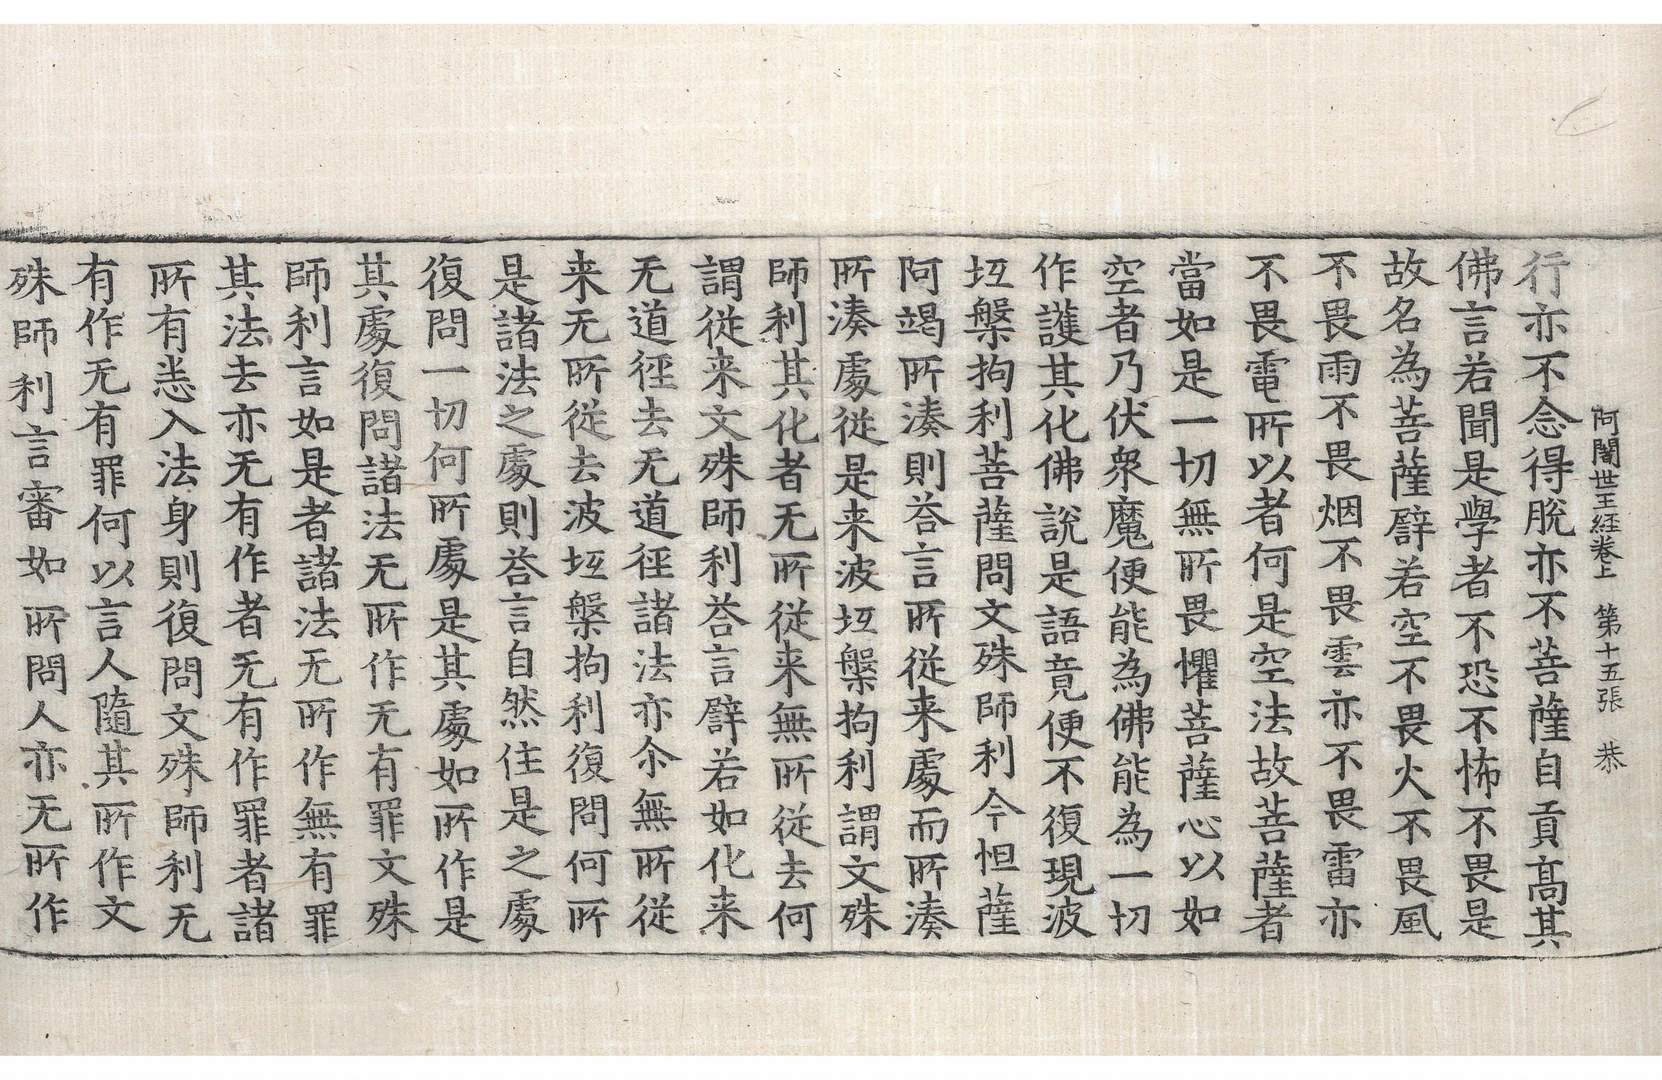 阿闍世王經卷上　第十五張　恭
行亦不念得脫亦不菩薩自貢高其
佛言若聞是學者不恐不怖不畏是
故名為菩薩譬若空不畏火不畏風
不畏雨不畏烟不畏雲亦不畏雷亦
不畏電所以者何是空法故菩薩者
當如是一切無所畏懼菩薩心以如
空者乃伏衆魔便能為佛能為一切
作護其化佛說是語竟便不復現波
坁槃拘利菩薩問文殊師利今怛薩
阿竭所湊則荅言所從来處而所湊
所湊處從是来波坁槃拘利謂文殊
師利其化者无所從来無所從去何
謂從来文殊師利荅言譬若如化来
无道徑去无道徑諸法亦尒無所從
来无所從去波坁槃拘利復問何所
是諸法之處則荅言自然住是之處
復問一切何所處是其處如所作是
其處復問諸法无所作无有罪文殊
師利言如是者諸法无所作無有罪
其法去亦无有作者无有作罪者諸
所有悉入法身則復問文殊師利无
有作无有罪何以言人隨其所作文
殊師利言審如所問人亦无所作